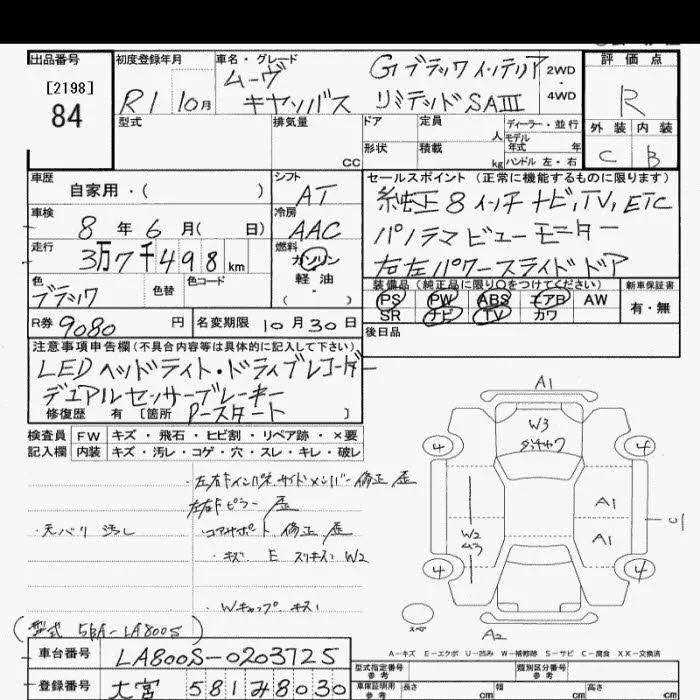 出品番号
[2198]
84
初度登録年月
R1 10月
車名・グレード
ムーヴ
キャンバス
Gブラックインテリア
リミテッドSAⅢ
2WD
4WD
評価点
R
外装 内装
C B
型式
排気量
CC
ドア
形状
定員
人
積載
kg
ディーラー・並行
モデル
年式 年
ハンドル 左・右
車歴
自家用・( )
シフト
AT
車検
8 年 6 月( 日)
冷房
AAC
走行
3万7千498km
燃料
ガソリン
軽油
( ・ )
色
ブラック
色替
色コード
セールスポイント (正常に機能するものに限ります)
純正8インチナビ,TV,ETC
パノラマビューモニター
右左パワースライドドア
装備品(純正品に限り○をつけてください)
PS PW ABS エアB AW
SR ナビ TV カワ
新車保証書
有・無
後日品
R券 9080 円
名変期限 10月30日
注意事項申告欄(不具合内容等は具体的に記入して下さい)
LEDヘッドライト・ドライブレコーダー
デュアルセンサーブレーキ
Pスタート
修復歴 有 [箇所 ]
検査員
記入欄
FW キズ・飛石・ヒビ割・リペア跡・×要
内装 キズ・汚レ・コゲ・穴・スレ・キレ・破レ
・左右Fインパネサイドメンバー修正 歪
左右Fピラー 歪
コアサポート 修正 歪
・キズ E スリキズ W2
・天バリ 汚レ
・Wキャップ キズ
A1
W3
4
4
A1
A1
C
W2
4
4
スペア
A2
A−キズ E−エクボ U−凹み W−補修跡 S−サビ C−腐食 XX−交換済
(型式 5BA-LA800S)
車台番号
LA800S-0203725
登録番号
大宮 581 み 8030
型式指定番号
参考
類別区分番号
参考
車庫証明用
参考
長さ cm
幅 cm
高さ cm